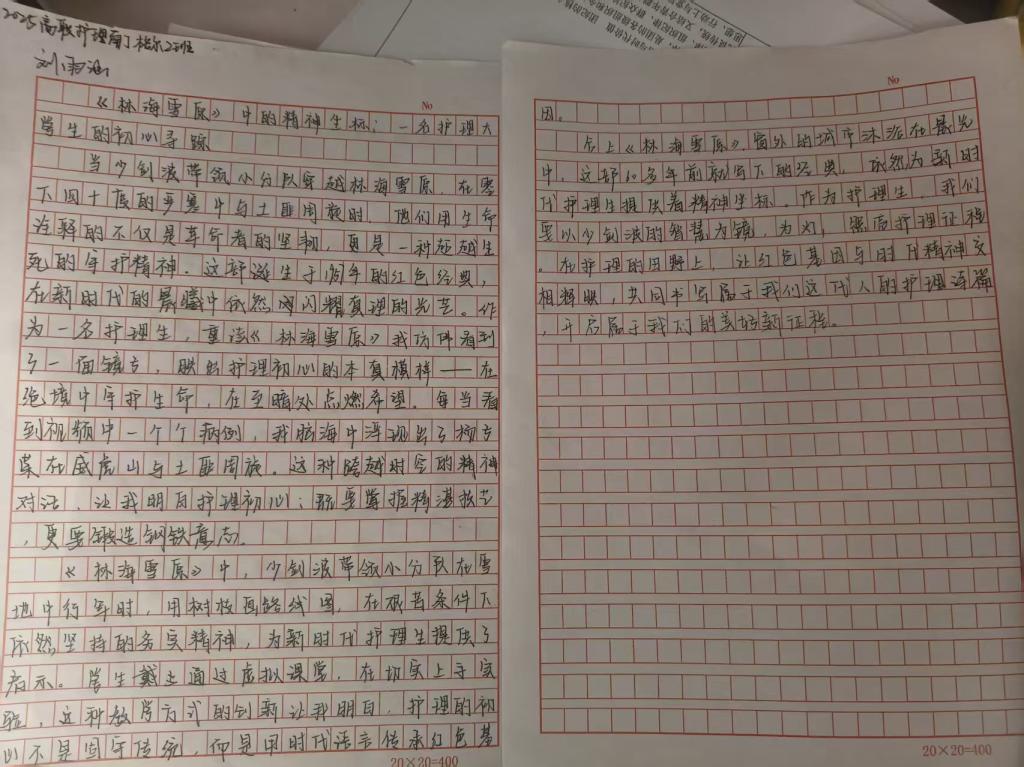 2025高职护理南丁格尔2班
刘雨涵
No
《林海雪原》中的精神坐标:一名护理大
学生的初心寻踪
当少剑波带领小分队穿越林海雪原,在零
下四十度的严寒中与土匪周旋时,他们用生命
诠释的不仅是革命者的坚韧,更是一种超越生
死的守护精神。这部诞生于1957年的红色经典,
在新时代的晨曦中依然闪耀真理的光芒。作
为一名护理生,重读《林海雪原》我仿佛看到
了一面镜子,映出护理初心的本真模样——在
绝境中守护生命,在至暗处点燃希望。每当看
到视频中一个个病例,我脑海中浮现出了杨子
荣在威虎山与土匪周旋。这种跨越时空的精神
对话,让我明白护理初心:既要掌握精湛技艺
,更要锻造钢铁意志。
《林海雪原》中,少剑波带领小分队在雪
地中行军时,用树枝画路线图,在艰苦条件下
依然坚持的务实精神,为新时代护理生提供了
启示。学生戴上通过虚拟课堂,在切实上手实
验,这种教学方式的创新让我明白,护理的初
心不是固守传统,而是用时代语言传承红色基
20×20=400
No
因。
合上《林海雪原》,窗外的城市沐浴在晨光
中,这部60多年前就写下的经典,依然为新时
代护理生提供着精神坐标。作为护理生,我们
要以少剑波的智慧为镜,为
护理让程
,在护理的田野上,让红色基因与时代精神交
相辉映,共同书写属于我们这代人的护理诗篇
,开启属于我们的美好新征程。
20×20=400